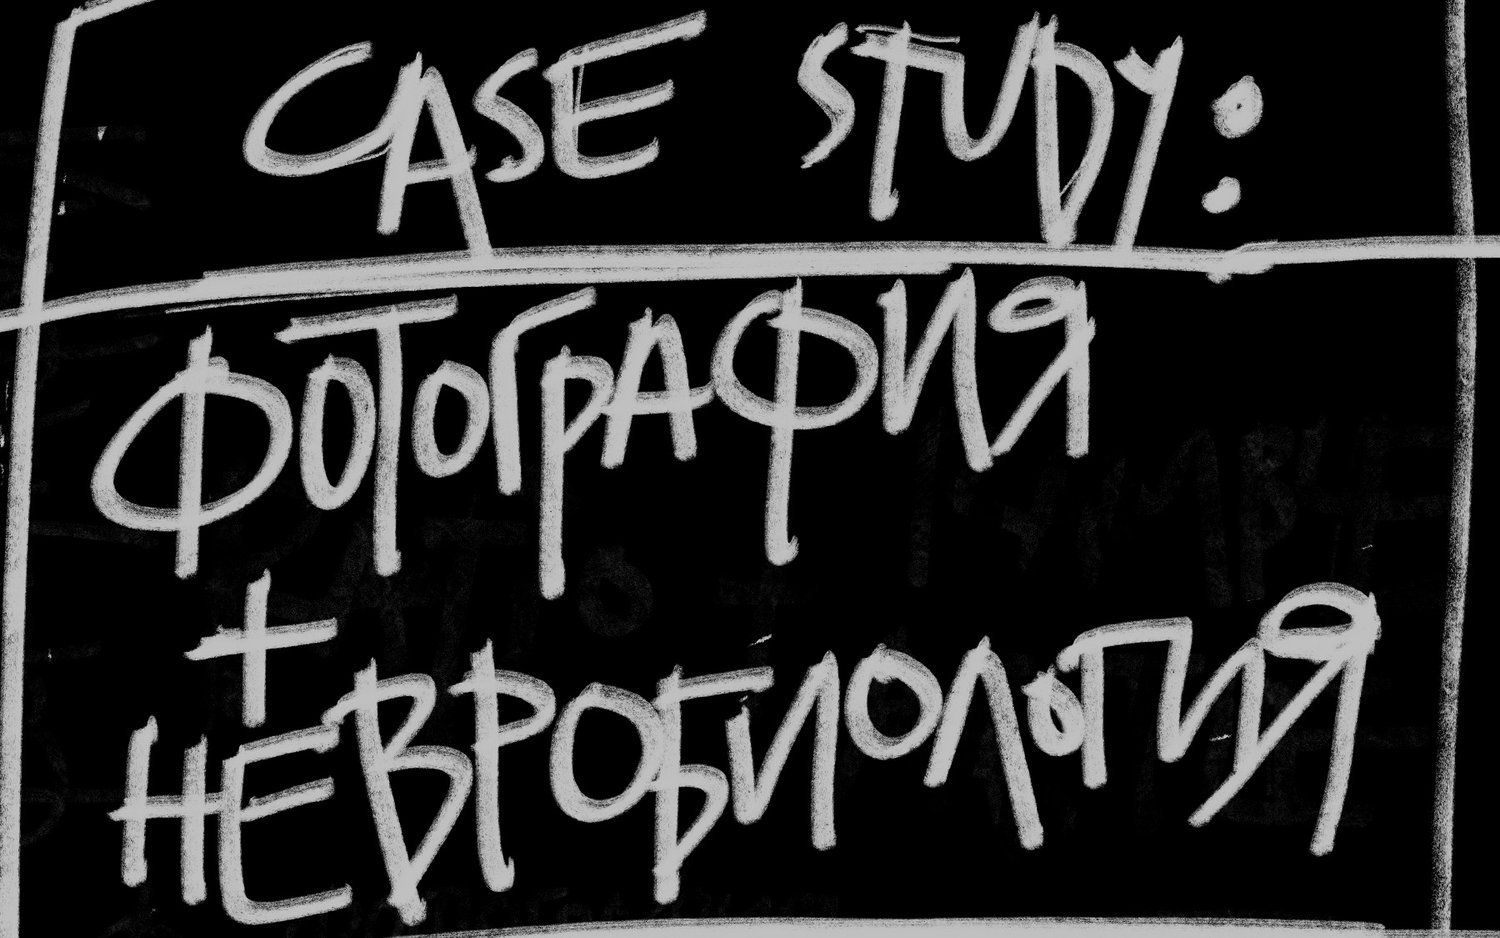 CASE STUDY:
ФОТОГРАФИЯ
+
НЕВРОБИОЛОГИЯ